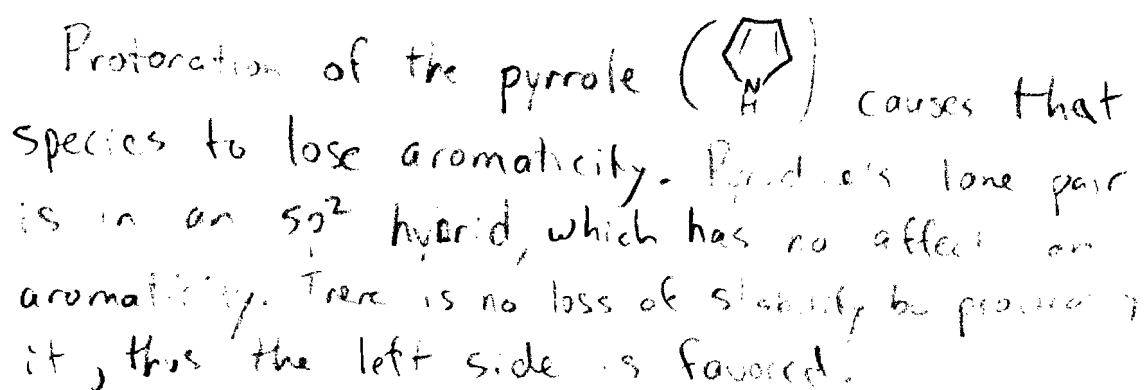 Protonation of the pyrrole ( N H ) causes that
species to lose aromaticity. Pyridine's lone pair
is in an sp² hybrid, which has no affect on
aromaticity. There is no loss of stability by
it, thus the left side is favored.